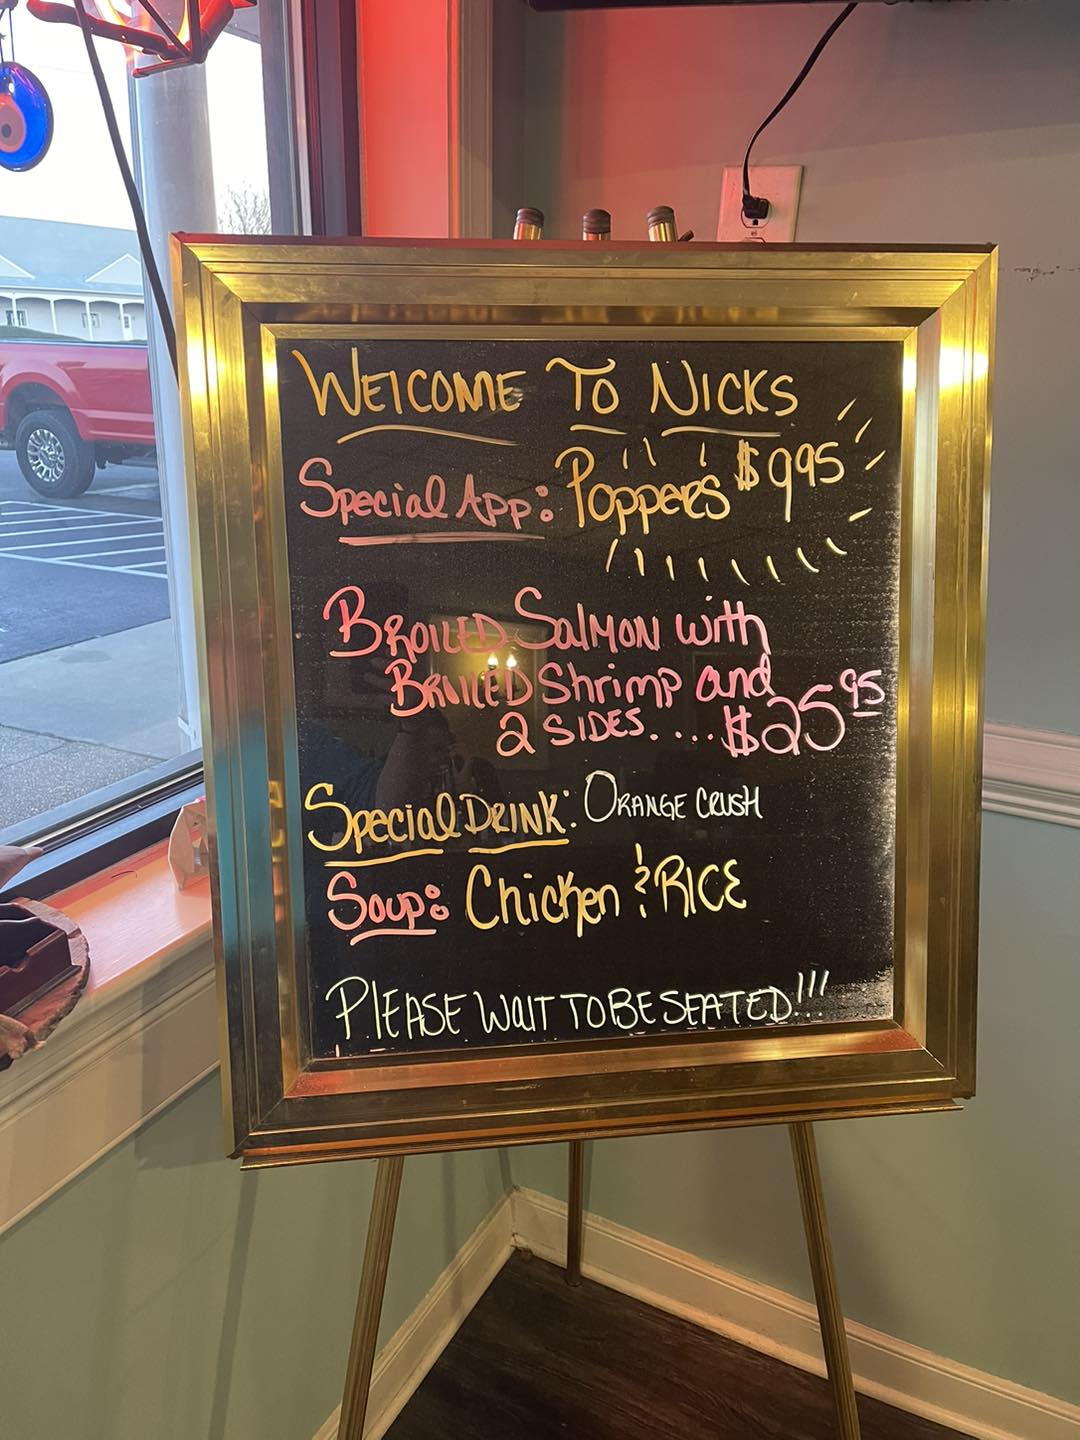 WELCOME TO NICKS
Special App: Poppers $9.95
BROILED SalMON with
BROILED Shrimp and
2 SIDES.... $25.95
Special DRINK: ORANGE CRUSH
Soup: Chicken & RICE
PlEASE WaiT TO BE SEATED!!!